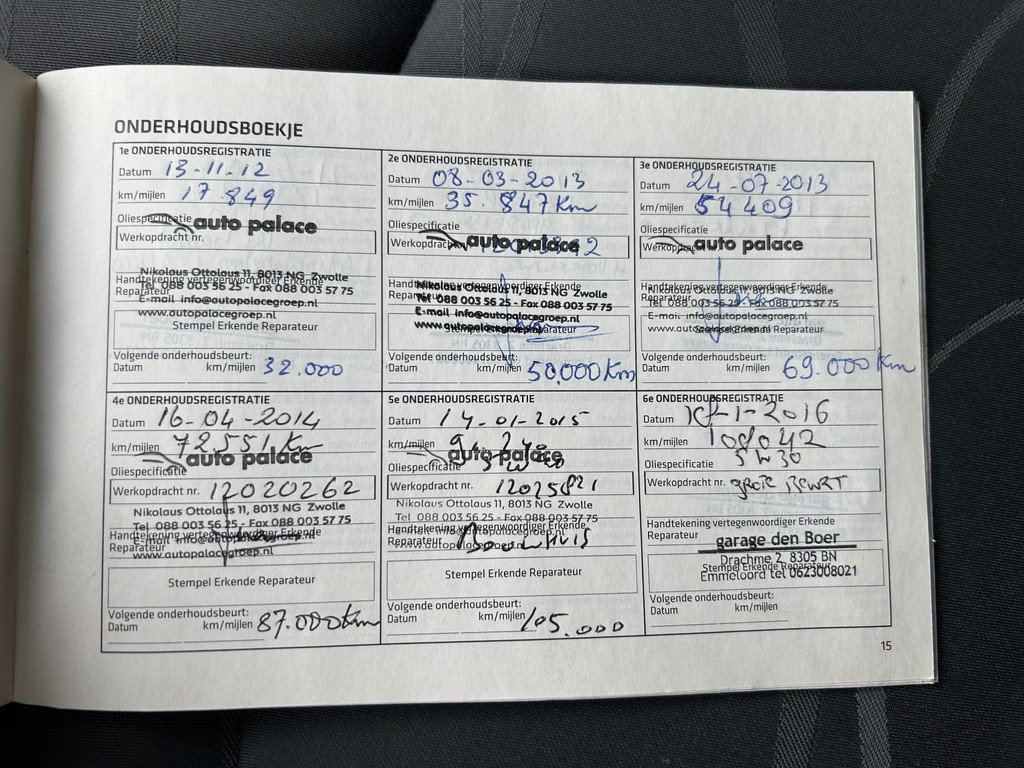 ONDERHOUDSBOEKJE
1e ONDERHOUDSREGISTRATIE
Datum 13-11-12
km/mijlen 17.849
Oliespecificatie
auto palace
Werkopdracht nr.
Nikolaus Ottolaus 11, 8013 NG Zwolle
Handtekening vertegenwoordiger Erkende
Tel 088 003 56 25 - Fax 088 003 57 75
Reparateur
E-mail info@autopalacegroep.nl
www.autopalacegroep.nl
Stempel Erkende Reparateur
Volgende onderhoudsbeurt:
Datum km/mijlen 32.000
2e ONDERHOUDSREGISTRATIE
Datum 08-03-2013
km/mijlen 35.847 Km
Oliespecificatie
auto palace
Werkopdracht
Nikolaus Ottolaus 11, 8013 NG Zwolle
Handtekening vertegenwoordiger Erkende
Tel 088 003 56 25 - Fax 088 003 57 75
Reparateur
E-mail info@autopalacegroep.nl
www.autopalacegroep.nl
Stempel Erkende Reparateur
Volgende onderhoudsbeurt:
Datum km/mijlen 50.000 Km
3e ONDERHOUDSREGISTRATIE
Datum 24-07-2013
km/mijlen 54409
Oliespecificatie
auto palace
Werkopdracht
Nikolaus Ottolaus 11, 8013 NG Zwolle
Handtekening vertegenwoordiger Erkende
Tel 088 003 56 25 - Fax 088 003 57 75
Reparateur
E-mail info@autopalacegroep.nl
www.autopalacegroep.nl
Stempel Erkende Reparateur
Volgende onderhoudsbeurt:
Datum km/mijlen 69.000 Km
4e ONDERHOUDSREGISTRATIE
Datum 16-04-2014
km/mijlen 72.551 Km
auto palace
Oliespecificatie
Werkopdracht nr. 12020262
Nikolaus Ottolaus 11, 8013 NG Zwolle
Tel 088 003 56 25 - Fax 088 003 57 75
Handtekening vertegenwoordiger Erkende
E-mail info@autopalacegroep.nl
Reparateur
www.autopalacegroep.nl
Stempel Erkende Reparateur
Volgende onderhoudsbeurt:
Datum km/mijlen 87.000 Km
5e ONDERHOUDSREGISTRATIE
Datum 14-01-2015
km/mijlen
auto palace
Oliespecificatie
Werkopdracht nr. 12025821
Nikolaus Ottolaus 11, 8013 NG Zwolle
Tel 088 003 56 25 - Fax 088 003 57 75
Handtekening vertegenwoordiger Erkende
E-mail info@autopalacegroep.nl
Reparateur
www.autopalacegroep.nl
Stempel Erkende Reparateur
Volgende onderhoudsbeurt:
Datum km/mijlen 105.000
6e ONDERHOUDSREGISTRATIE
Datum -1-2016
km/mijlen
Oliespecificatie 5W30
Werkopdracht nr. grote Beurt
Handtekening vertegenwoordiger Erkende
Reparateur
garage den Boer
Drachme 2 8305 BN
Stempel Erkende Reparateur
Emmeloord tel 0623008021
Volgende onderhoudsbeurt:
Datum km/mijlen
15